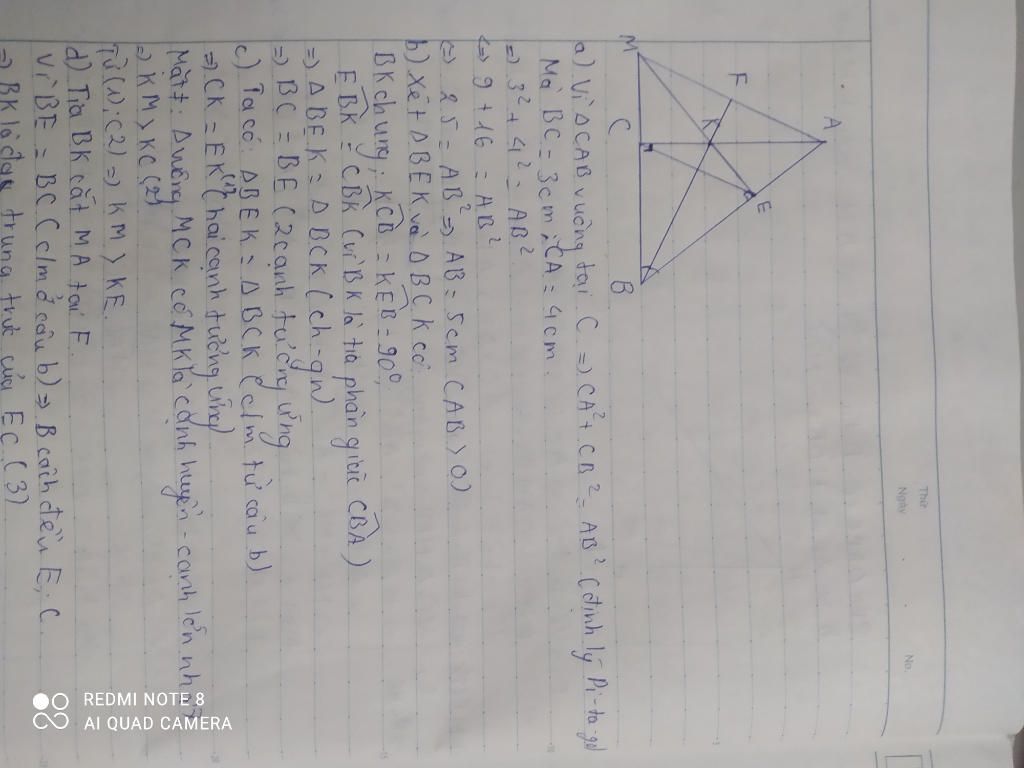 Thứ
Ngày
No.
A
F
K
E
M
C
B
a) Vì ΔCAB vuông tại C => CA² + CB² = AB² (định lý Pi-ta-go)
Mà BC = 3cm; CA = 4cm.
=> 3² + 4² = AB²
<=> 9 + 16 = AB²
<=> 25 = AB² => AB = 5cm (AB > 0)
b) Xét ΔBEK và ΔBCK có:
BK chung; KCB = KEB = 90°;
EBK = CBK (vì BK là tia phân giác CBA)
=> ΔBEK = ΔBCK (ch-gn)
=> BC = BE (2 cạnh tương ứng
c) Ta có: ΔBEK = ΔBCK (c/m từ câu b)
=> CK = EK (1) (hai cạnh tương ứng)
Mặt ≠: Δ vuông MCK có MK là cạnh huyền - cạnh lớn nhất
=> KM > KC (2)
Từ (1); (2) => KM > KE.
d) Tia BK cắt MA tại F.
Vì BE = BC (c/m ở câu b) => B cách đều E; C.
=> BK là đg trung trực của EC. (3)
REDMI NOTE 8
AI QUAD CAMERA